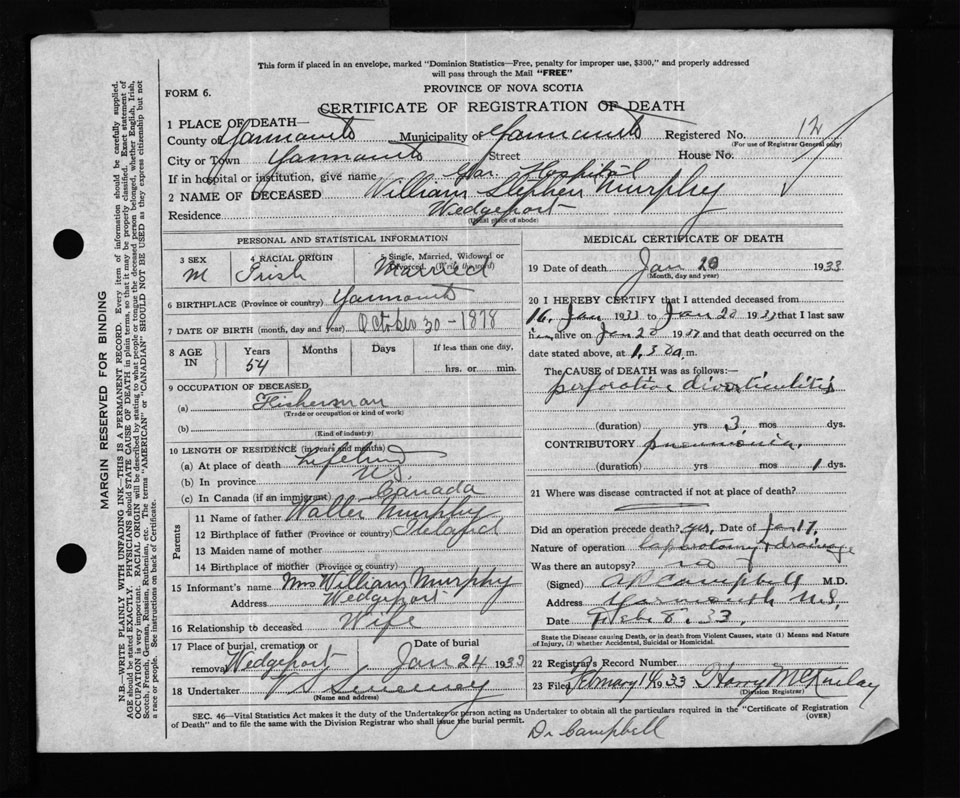 This form if placed in an envelope, marked "Dominion Statistics—Free, penalty for improper use, $300," and properly addressed
will pass through the Mail "FREE"
PROVINCE OF NOVA SCOTIA
FORM 6.
CERTIFICATE OF REGISTRATION OF DEATH
1 PLACE OF DEATH—
County of Yarmouth Municipality of Yarmouth Registered No. 12
(For use of Registrar General only)
City or Town Yarmouth Street House No.
If in hospital or institution, give name Hospital
2 NAME OF DECEASED William Stephen Murphy
Residence Wedgeport
(Usual place of abode)
PERSONAL AND STATISTICAL INFORMATION
3 SEX 4 RACIAL ORIGIN 5 Single, Married, Widowed or
M Irish Married
6 BIRTHPLACE (Province or country) Yarmouth
7 DATE OF BIRTH (month, day and year) October 30-1878
8 AGE IN Years Months Days If less than one day,
54 hrs. or min.
9 OCCUPATION OF DECEASED
(a) Fisherman
(Trade or occupation or kind of work)
(b)
(Kind of industry)
10 LENGTH OF RESIDENCE (in years and months)
(a) At place of death Lifetime
(b) In province N.S.
(c) In Canada (if an immigrant) Canada
Parents
11 Name of father Walter Murphy
12 Birthplace of father (Province or country) Ireland
13 Maiden name of mother
14 Birthplace of mother (Province or country)
15 Informant's name Mrs William Murphy
Address Wedgeport
16 Relationship to deceased Wife
17 Place of burial, cremation or Date of burial
removal Wedgeport Jan 24 1933
18 Undertaker V S Sweeney
(Name and address)
MEDICAL CERTIFICATE OF DEATH
19 Date of death Jan 20 1933
(Month, day and year)
20 I HEREBY CERTIFY that I attended deceased from
16, Jan 1933 to Jan 20 1933 that I last saw
him alive on Jan 20 1933 and that death occurred on
date stated above, at 1.50 a.m.
The CAUSE of DEATH was as follows:—
perforation diverticulitis
(duration) yrs 3 mos dys.
CONTRIBUTORY pneumonia.
(duration) yrs mos 1 dys.
21 Where was disease contracted if not at place of death?
Did an operation precede death? yes, Date of Jan 17,
Nature of operation laparotomy & drainage
Was there an autopsy? no
(Signed) A R Campbell M.D.
Address Yarmouth N.S.
Date Feb 8. 33.
State the Disease causing Death, or in death from Violent Causes, state (1) Means and Nature
of Injury, (2) whether Accidental, Suicidal or Homicidal.
22 Registrar's Record Number
23 Filed February 14 1933 Harry McKinlay
(Division Registrar)
SEC. 46—Vital Statistics Act makes it the duty of the Undertaker or person acting as Undertaker to obtain all the particulars required in the "Certificate of Registration
of Death" and to file the same with the Division Registrar who shall issue the burial permit. (OVER)
Dr Campbell
MARGIN RESERVED FOR BINDING
N.B.—WRITE PLAINLY WITH UNFADING INK—THIS IS A PERMANENT RECORD. Every item of information should be carefully supplied.
AGE should be stated EXACTLY. PHYSICIANS should STATE CAUSE OF DEATH in plain terms, so that it may be properly classified. Exact statement of
OCCUPATION is very important. RACIAL ORIGIN will be described by stating to what people or tongue the deceased person belonged, whether English, Irish,
Scotch, French, German, Russian, Ruthenian, etc. The terms "AMERICAN" or "CANADIAN" SHOULD NOT BE USED as they express citizenship but not
a race or people. See instructions on back of Certificate.